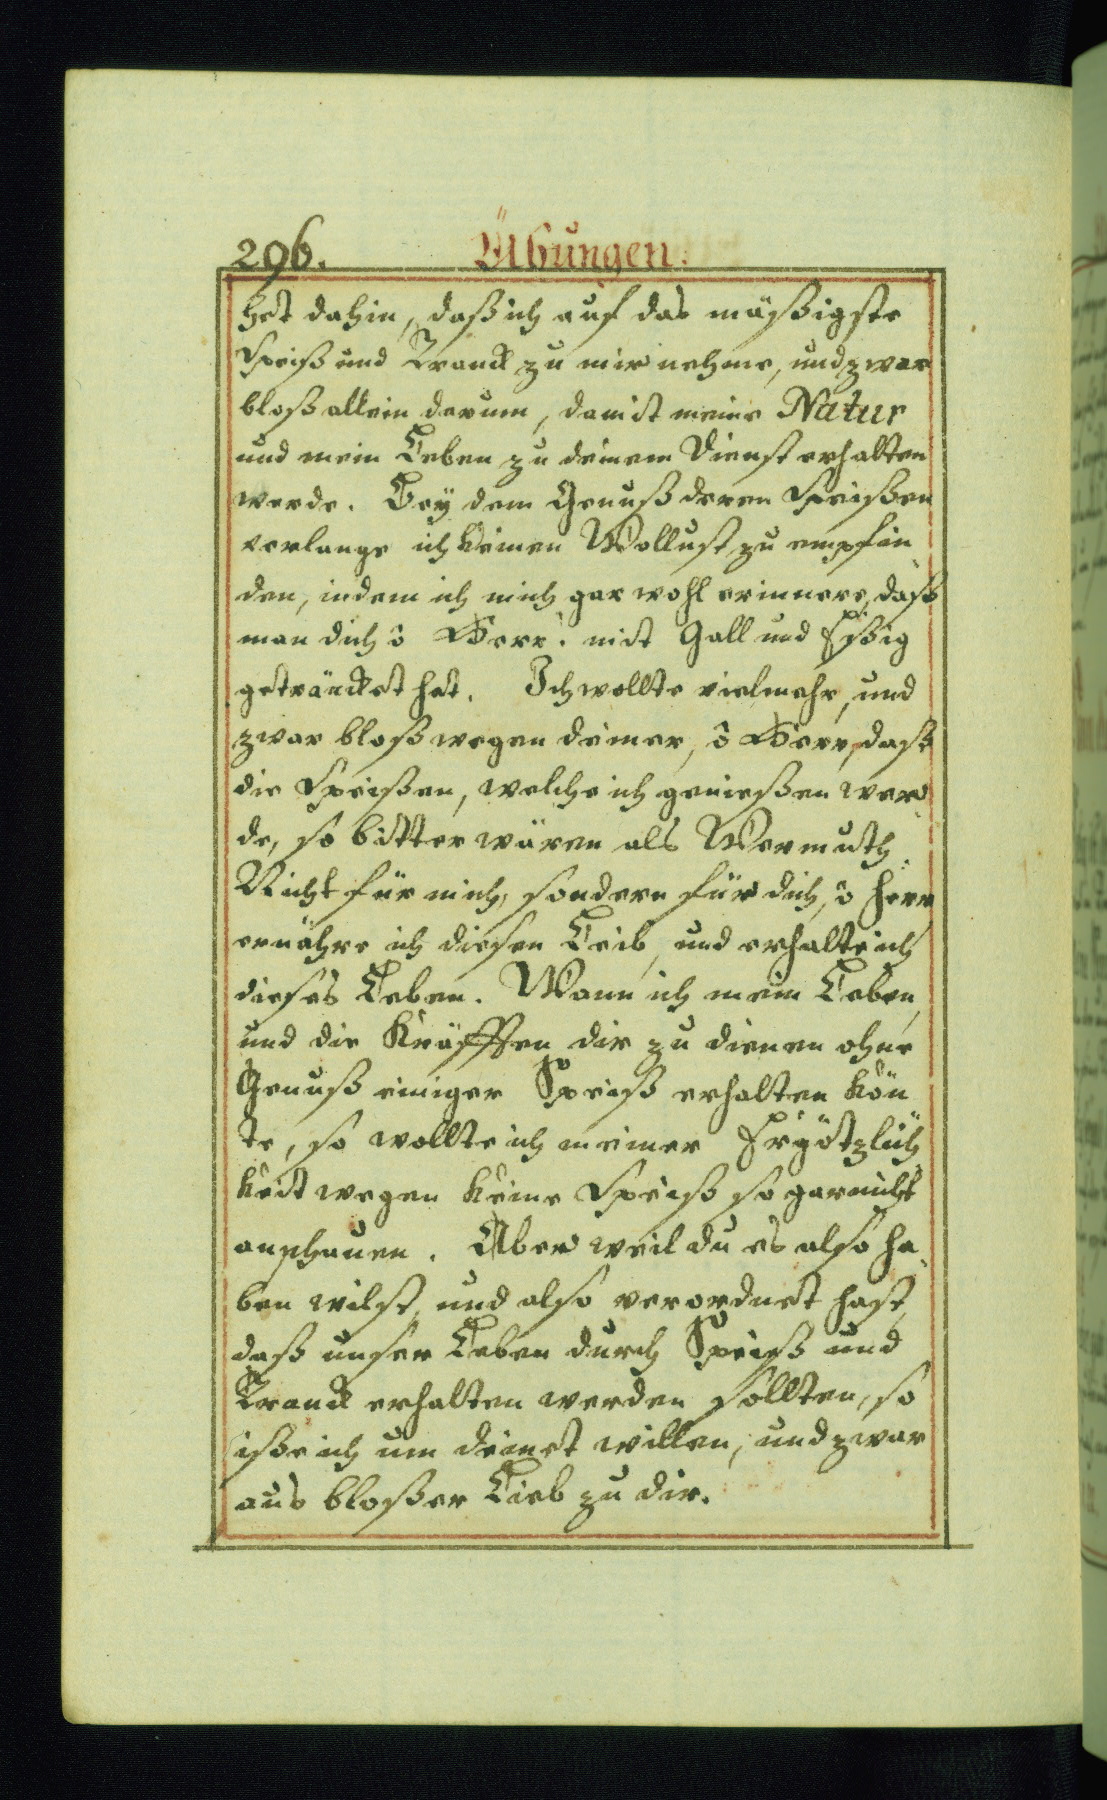 296. Übungen.
het dahin, daß ich auf das mäßigste
Speiß und Tranck zu mir nehme, und zwar
bloß allein darum, damit meine Natur
und mein Leben zu deinem Dienst erhalten
werde. Bey dem Genuß deren Speißen
verlange ich keinen Wollust zu empfin
den, indem ich mich gar wohl erinnere, daß
man dich ô Herr! mit Gall und Eßig
geträncket hat. Ich wollte vielmehr, und
zwar bloß wegen deiner, ô Herr, daß
die Speißen, welche ich genießen wer
de, so bitter wären als Wermuth.
Nicht für mich, sondern für dich, ô Herr
ernähre ich diesen Leib, und erhalte ich
dieses Leben. Wann ich mein Leben,
und die Kräfften dir zu dienen ohne
Genuß einiger Speiß erhalten kön
te, so wollte ich meiner Ergötzlich
keit wegen keine Speiß so gar nicht
anschauen. Aber weil du es also ha
ben wilst, und also verordnet hast,
daß unser Leben durch Speiß und
Tranck erhalten werden sollten, so
iße ich um deinet willen, und zwar
aus bloßer Lieb zu dir.